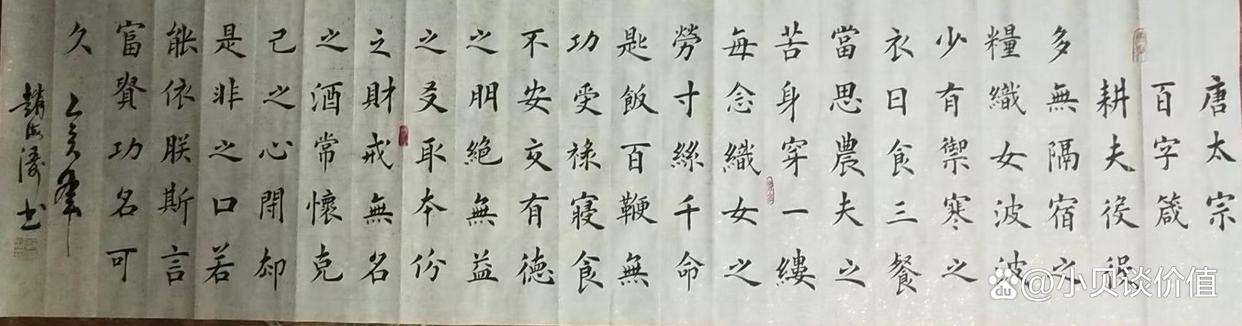 唐太宗
百字箴
耕夫役役
多無隔宿之
糧織女波波
少有禦寒之
衣日食三餐
當思農夫之
苦身穿一縷
每念織女之
勞寸絲千命
匙飯百鞭無
功受祿寢食
不安交有德
之朋絕無益
之友取本份
之財戒無名
之酒常懷克
己之心閉却
是非之口若
能依朕斯言
富貴功名可
久 亥年
趙海濤书
@小贝谈价值